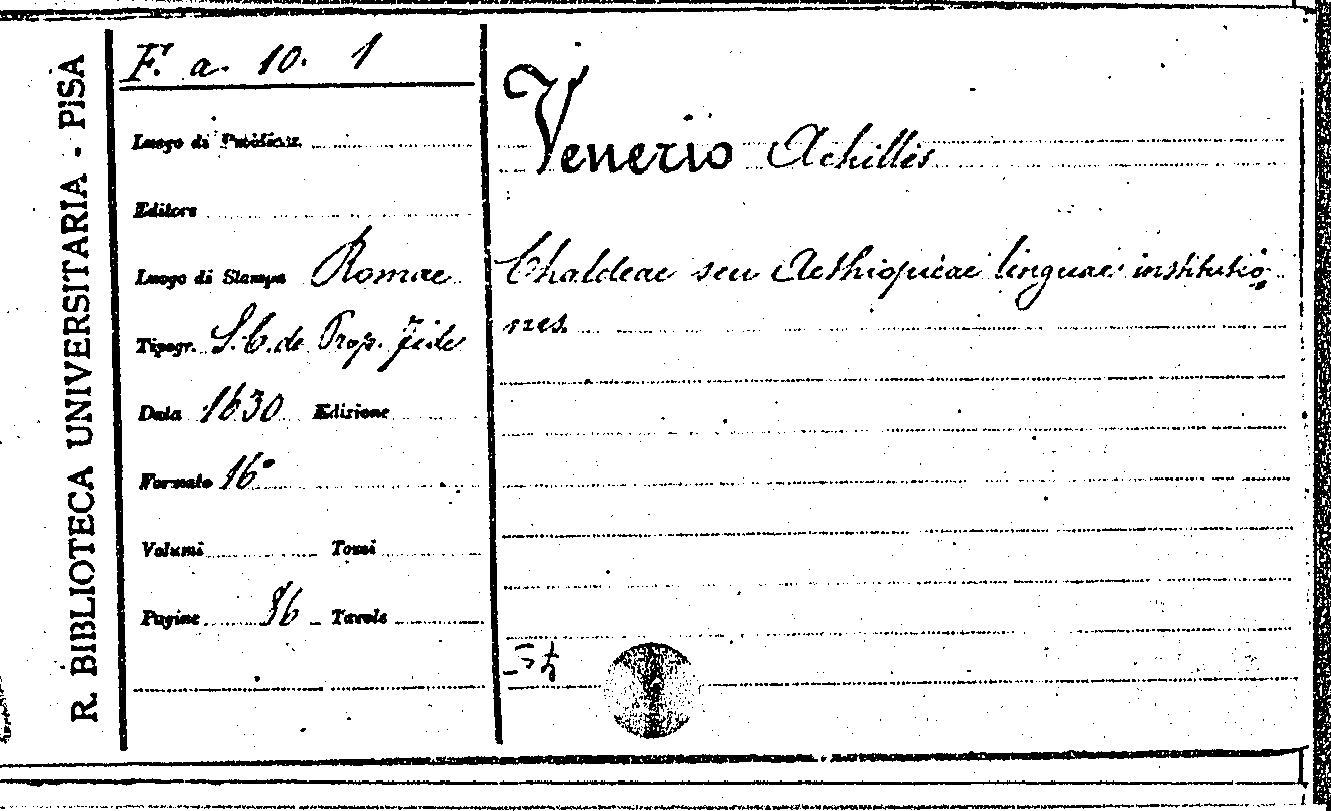 R. BIBLIOTECA UNIVERSITARIA - PISA
F. a. 10. 1
Luogo di Pubblicaz.
Editore
Luogo di Stampa Romae
Tipogr. S. C. de Prop. Fide
Data 1630 Edizione
Formato 16°
Volumi Tomi
Pagine 36 Tavole
Venerio Achilles
Chaldeae seu Aethiopicae linguae institutio-
nes.